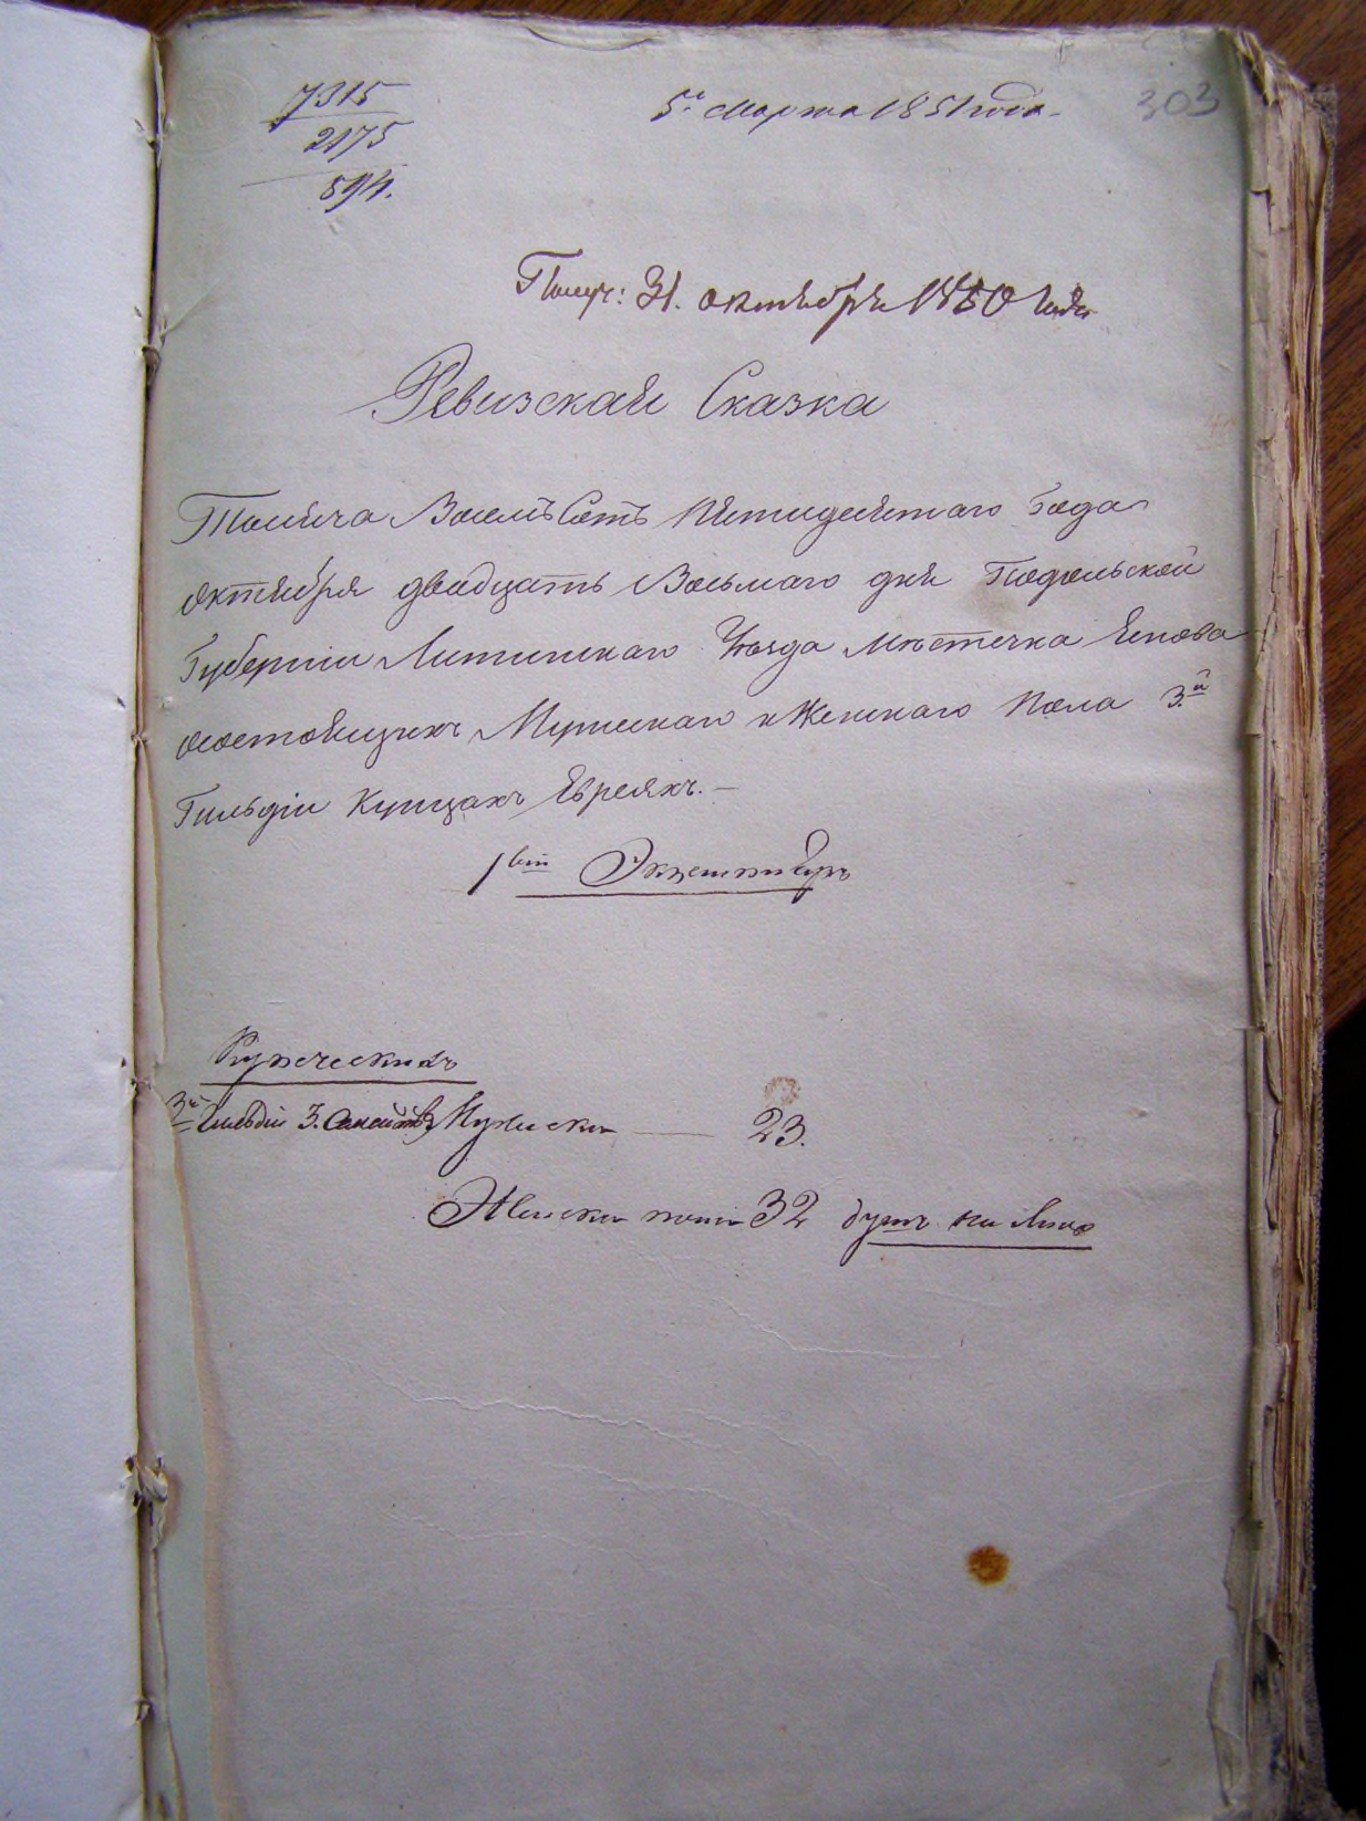 7315
2175
594.
5. Марта 1851 года.
303
Получ: 31. октября 1850 года
Ревизская Сказка
Тысяча Восемъ Сотъ Пятидесятаго Года
октября двадцать Восьмаго дня Подольской
Губерніи Литинскаго Уѣзда Мѣстечка Янова
состоящихъ Мужескаго и Женскаго Пола 3.й
Гильдіи Купцахъ Евреяхъ.—
1вый Экземпляръ
Купеческихъ
3й Гильдіи 3. Семейства Мужеска — 23.
Женска пола 32 душъ на лицо